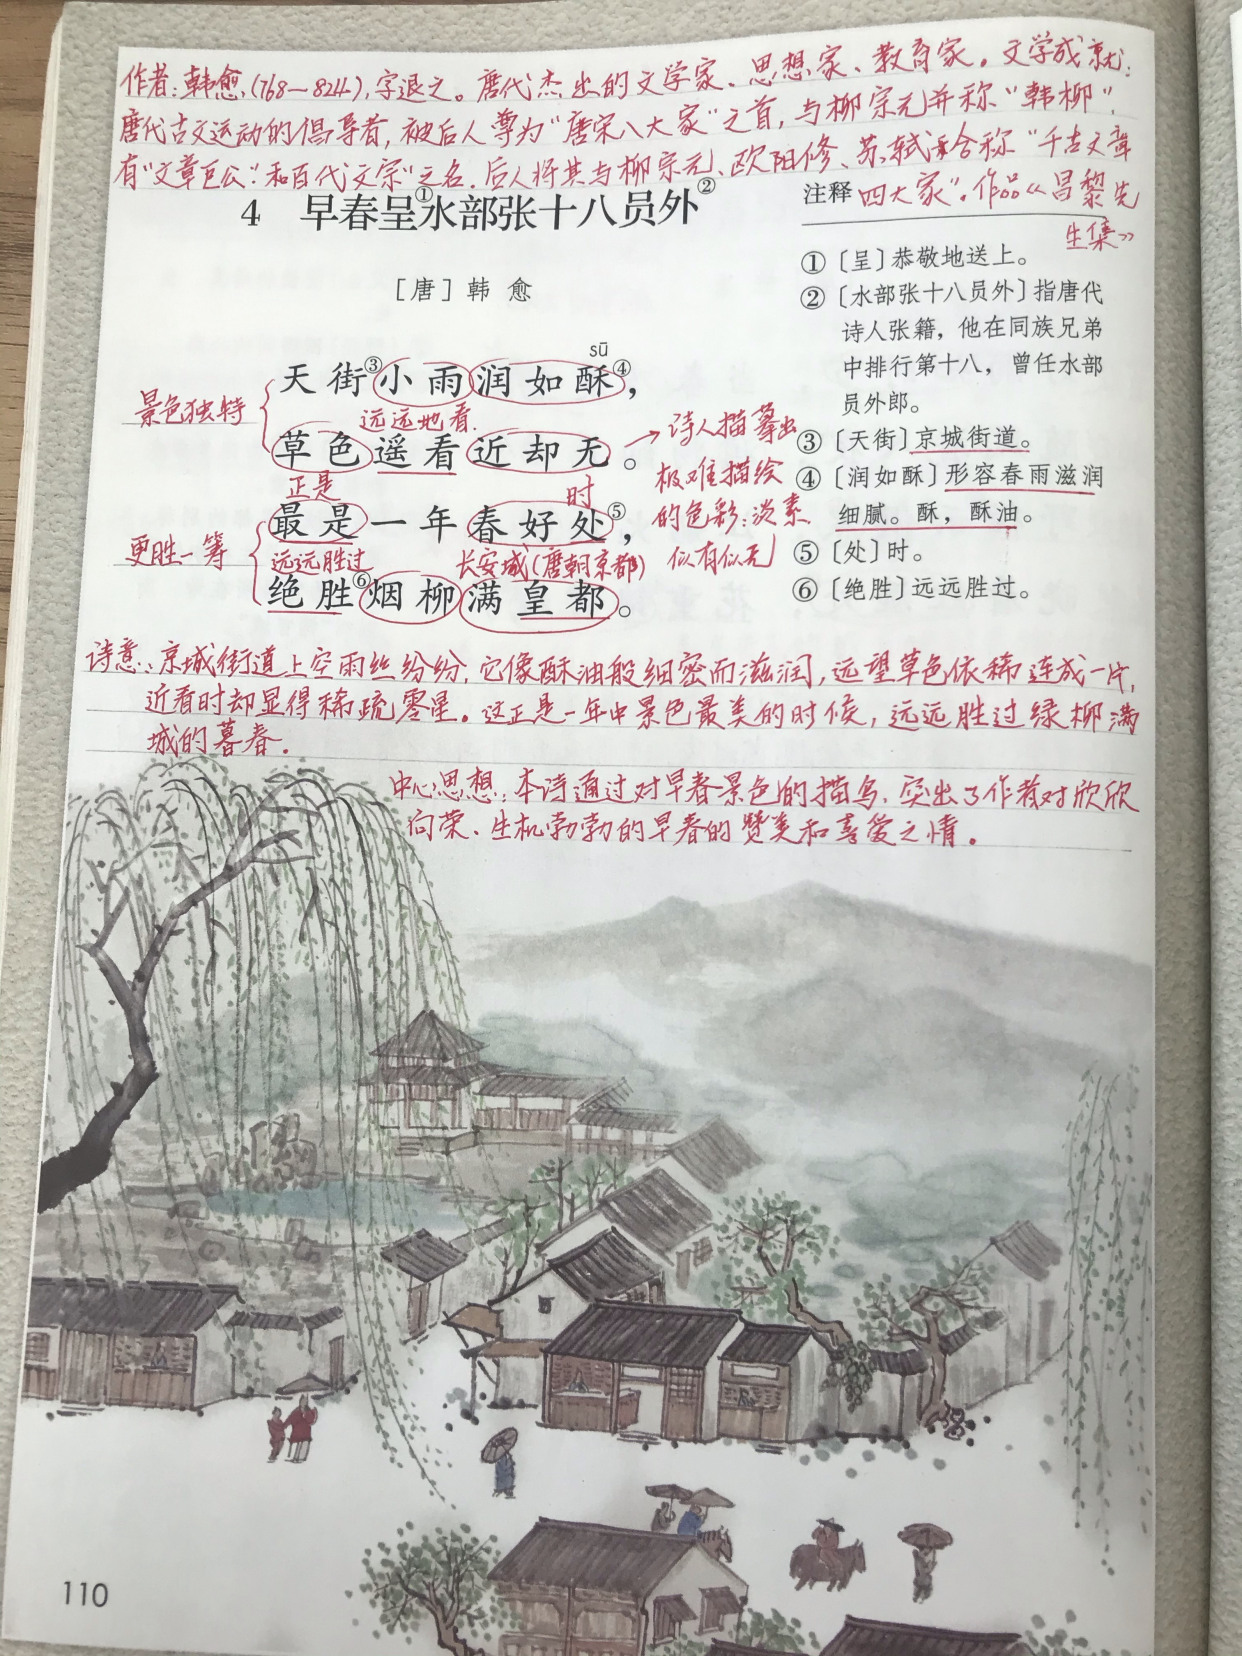 作者:韩愈,(768—824),字退之。唐代杰出的文学家、思想家、教育家。文学成就:
唐代古文运动的倡导者,被后人尊为“唐宋八大家”之首,与柳宗元并称“韩柳”,
有“文章巨公”和百代文宗”之名.后人将其与柳宗元、欧阳修、苏轼合称“千古文章
四大家”。作品《昌黎先
生集》
4 早春呈①水部张十八员外②
[唐] 韩 愈
sū
天街③小雨润如酥④,
景色独特
远远地看.
草色遥看近却无。
→诗人描摹出
极难描绘
的色彩:淡素
似有似无
正是
时
最是一年春好处⑤,
更胜一筹
远远胜过
长安城(唐朝京都)
绝胜⑥烟柳满皇都。
注释
①〔呈〕恭敬地送上。
②〔水部张十八员外〕指唐代
诗人张籍,他在同族兄弟
中排行第十八,曾任水部
员外郎。
③〔天街〕京城街道。
④〔润如酥〕形容春雨滋润
细腻。酥,酥油。
⑤〔处〕时。
⑥〔绝胜〕远远胜过。
诗意:京城街道上空雨丝纷纷,它像酥油般细密而滋润,远望草色依稀连成一片,
近看时却显得稀疏零星。这正是一年中景色最美的时候,远远胜过绿柳满
城的暮春.
中心思想:本诗通过对早春景色的描写、突出了作者对欣欣
向荣、生机勃勃的早春的赞美和喜爱之情。
110